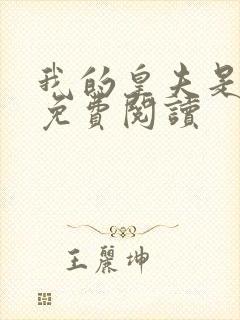 我的皇夫是
免費閱讀
王麗坤